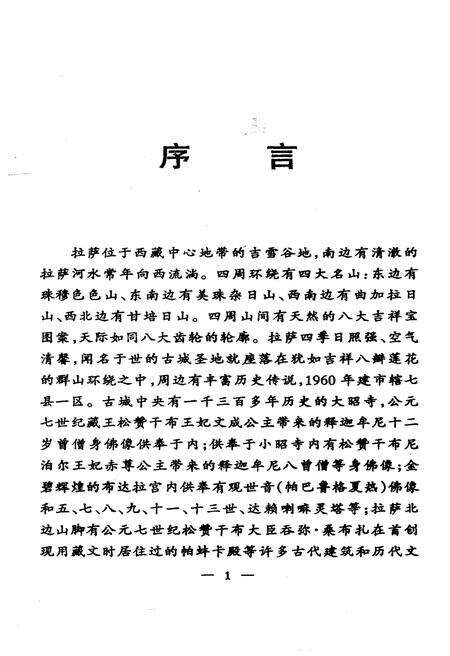 序言
拉萨位于西藏中心地带的吉雪谷地,南边有清澈的
拉萨河水常年向西流淌。四周环绕有四大名山:东边有
珠穆色色山、东南边有美珠杂日山、西南边有曲加拉日
山、西北边有甘培日山。四周山间有天然的八大吉祥宝
图案,天际如同八大齿轮的轮廓。拉萨四季日照强、空气
清馨,闻名于世的古城圣地就座落在犹如吉祥八瓣莲花
的群山环绕之中,周边有丰富历史传说,1960年建市辖七
县一区。古城中央有一千三百多年历史的大昭寺,公元
七世纪藏王松赞干布王妃文成公主带来的释迦牟尼十二
岁曾僧身佛像供奉于内;供奉于小昭寺内有松赞干布尼
泊尔王妃赤尊公主带来的释迦牟尼八曾僧等身佛像;金
碧辉煌的布达拉宫内供奉有观世音(帕巴鲁格夏热)佛像
和五、七、八、九、十一、十三世、达赖喇嘛灵塔等;拉萨北
边山脚有公元七世纪松赞干布大臣吞弥·桑布扎在首创
现用藏文时居住过的帕蚌卡殿等许多古代建筑和历代文
— 1 —